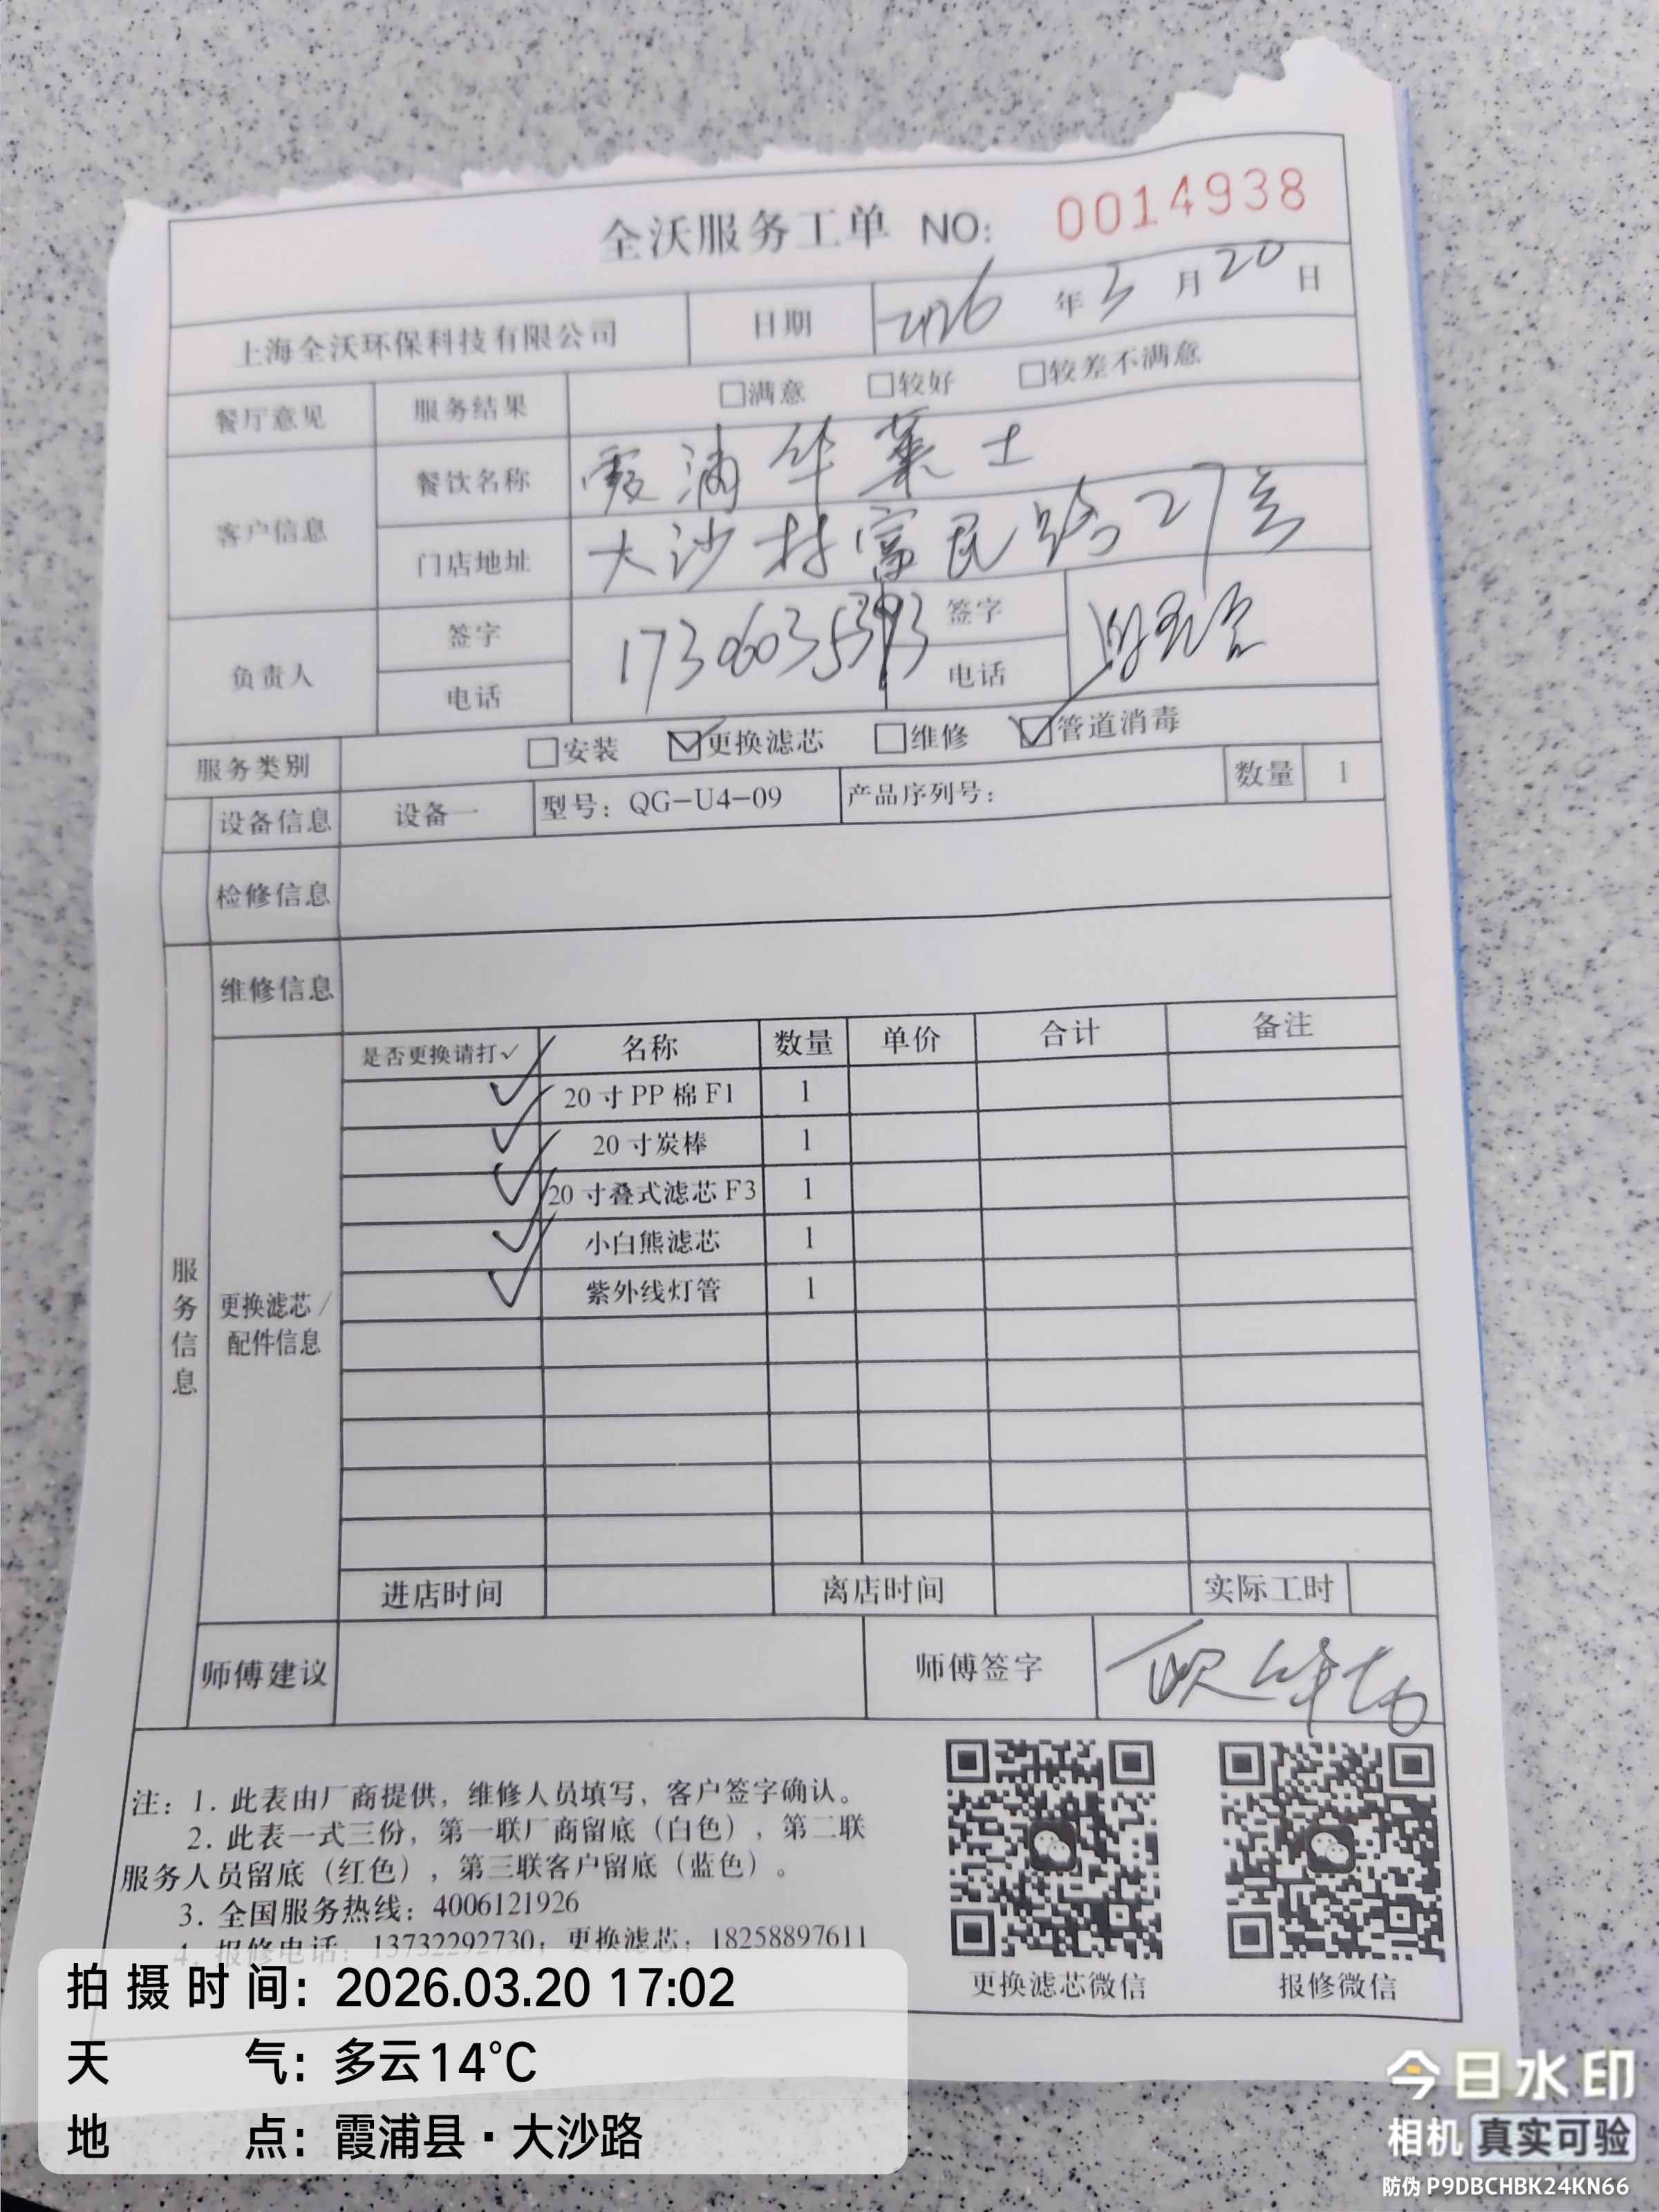 全沃服务工单 NO: 0014938
上海全沃环保科技有限公司 日期 2026 年 3 月 20 日
餐厅意见 服务结果 □满意 □较好 □较差不满意
客户信息 餐饮名称 霞浦华莱士
门店地址 大沙村富民路27号
负责人 签字 签字
电话 电话
服务类别 □安装 ☑更换滤芯 □维修 ☑管道消毒
设备信息 设备一 型号：QG-U4-09 产品序列号： 数量 1
检修信息
维修信息
服务信息
更换滤芯/配件信息
是否更换请打✓ 名称 数量 单价 合计 备注
✓ 20寸PP棉F1 1
✓ 20寸炭棒 1
✓ 20寸叠式滤芯F3 1
✓ 小白熊滤芯 1
✓ 紫外线灯管 1
进店时间 离店时间 实际工时
师傅建议 师傅签字
注：1. 此表由厂商提供，维修人员填写，客户签字确认。
2. 此表一式三份，第一联厂商留底（白色），第二联
服务人员留底（红色），第三联客户留底（蓝色）。
3. 全国服务热线：4006121926
4. 报修电话：13732292730；更换滤芯：18258897611
更换滤芯微信 报修微信
拍摄时间：2026.03.20 17:02
天气：多云14℃
地点：霞浦县·大沙路
今日水印
相机 真实可验
防伪 P9DBCHBK24KN66